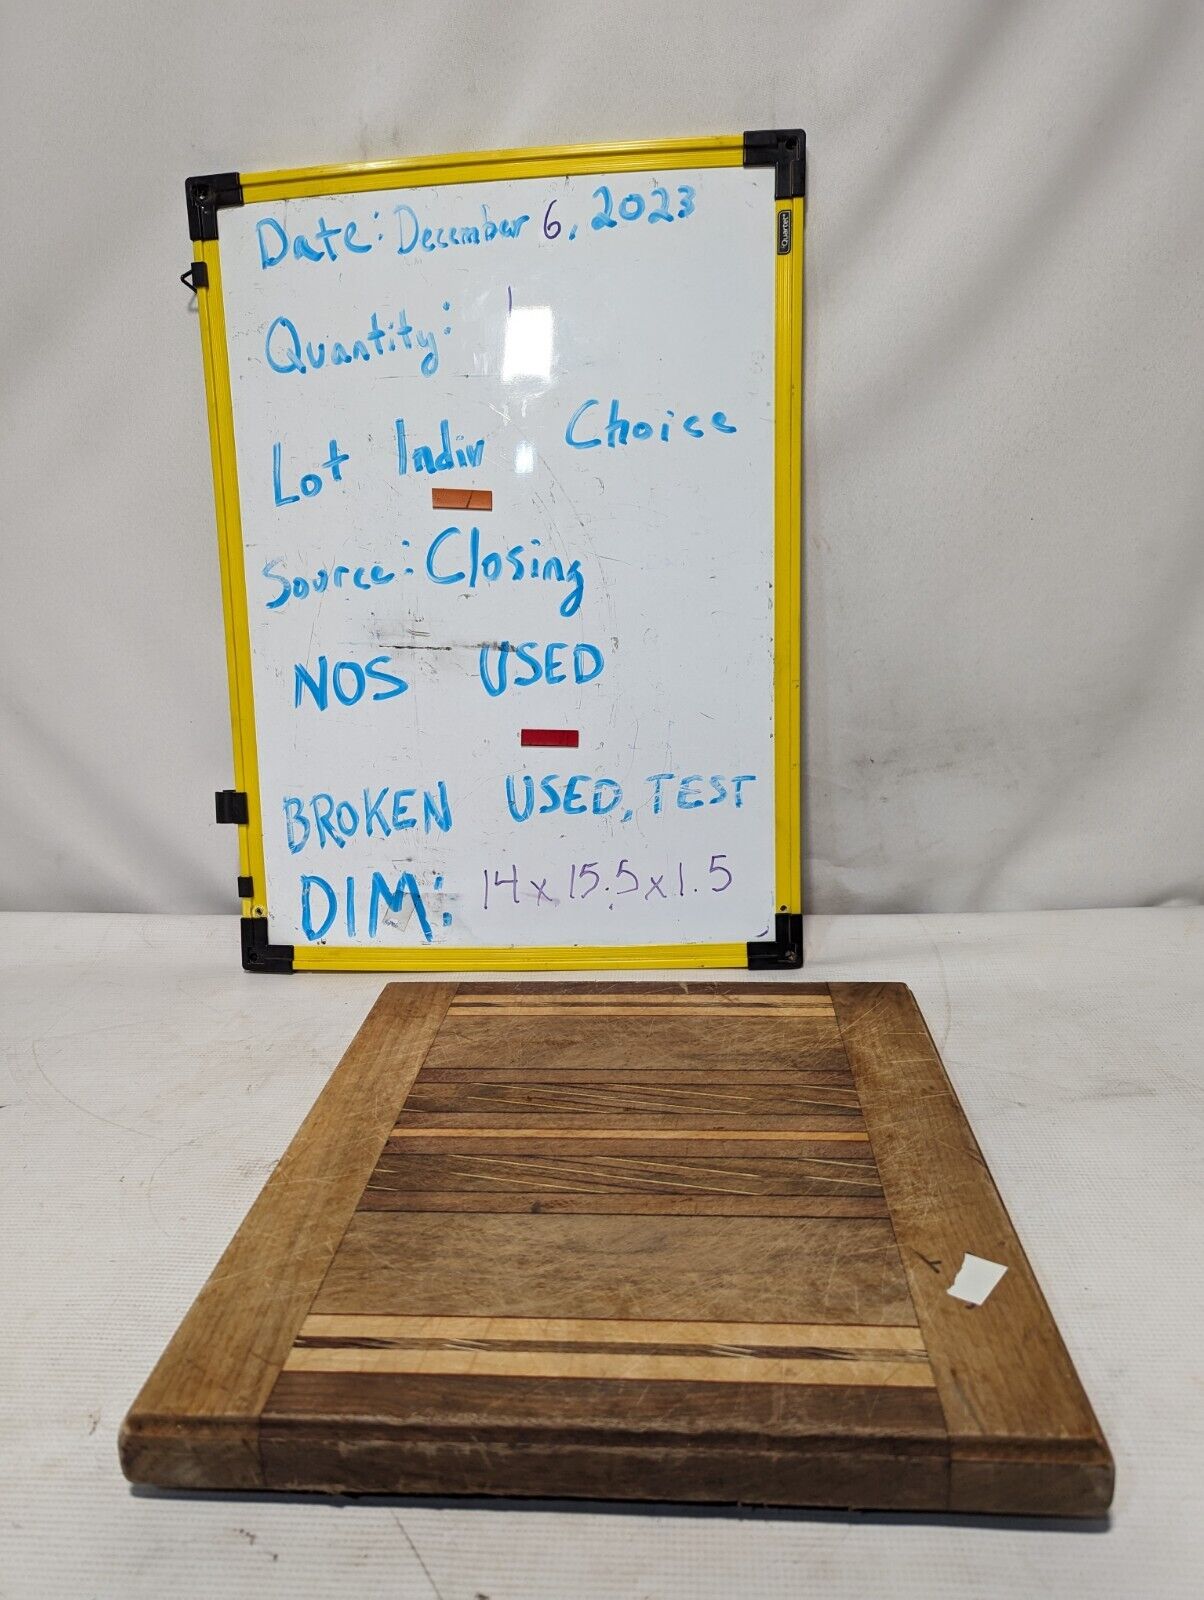 Date: December 6, 2023
Quartet
Quantity: 1
Lot Indiv Choice
Source: Closing
NOS USED
BROKEN USED, TEST
DIM: 14 x 15.5 x 1.5